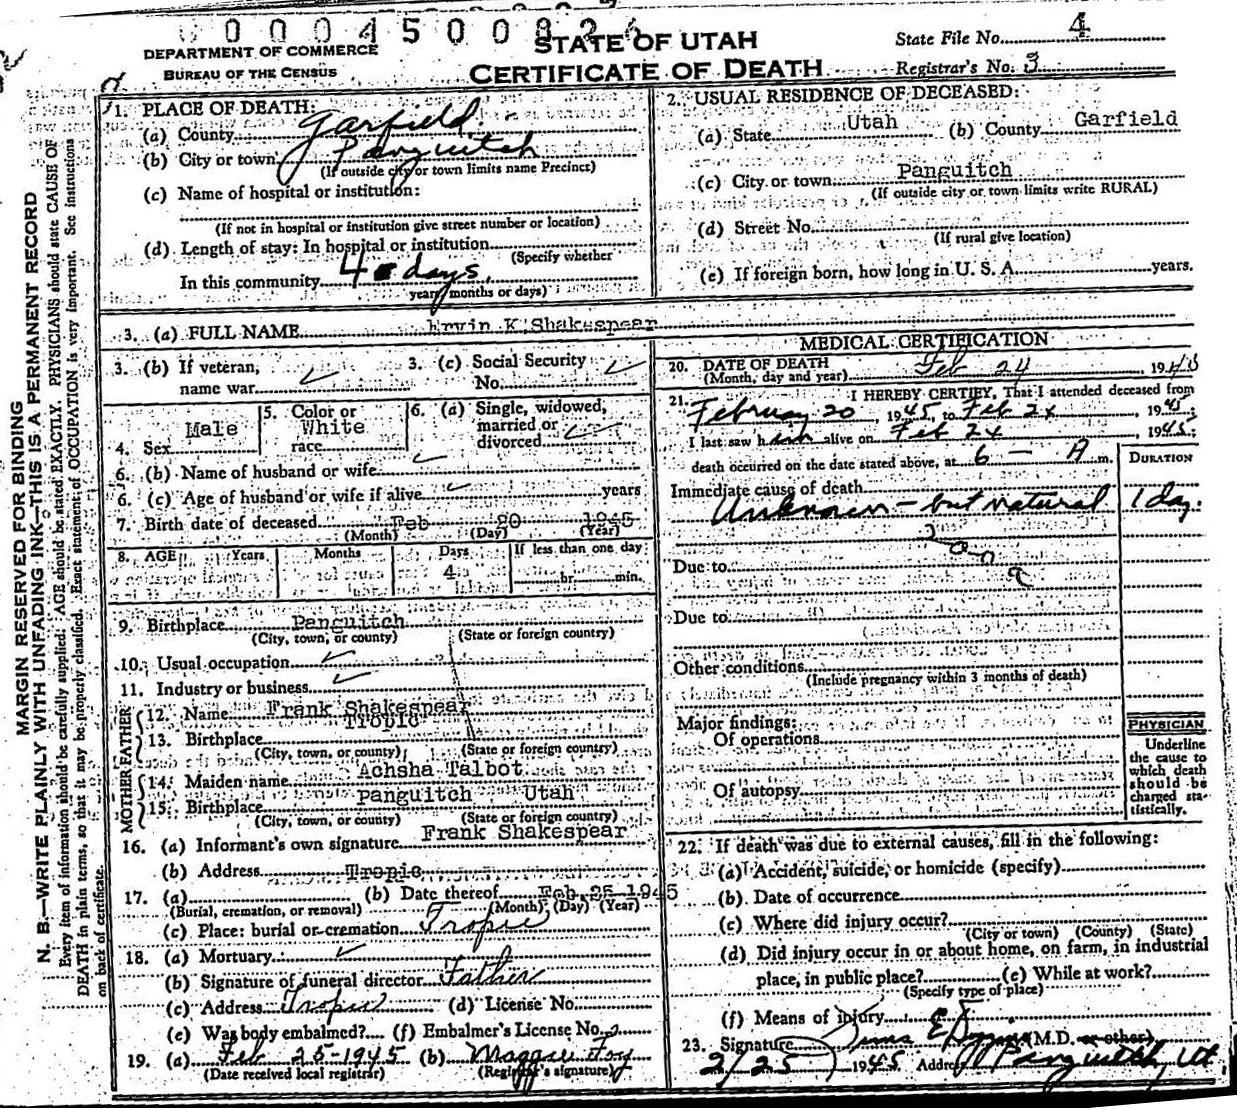 0004500826
DEPARTMENT OF COMMERCE
BUREAU OF THE CENSUS
STATE OF UTAH
CERTIFICATE OF DEATH
State File No. 4
Registrar's No. 3
MARGIN RESERVED FOR BINDING
N. B.—WRITE PLAINLY WITH UNFADING INK—THIS IS A PERMANENT RECORD
Every item of information should be carefully supplied. AGE should be stated EXACTLY. PHYSICIANS should state CAUSE OF
DEATH in plain terms, so that it may be properly classified. Exact statement of OCCUPATION is very important. See instructions
on back of certificate.
1. PLACE OF DEATH:
(a) County Garfield
(b) City or town Panguitch
(If outside city or town limits name Precinct)
(c) Name of hospital or institution:
(If not in hospital or institution give street number or location)
(d) Length of stay: In hospital or institution
(Specify whether
In this community 4 days
years, months or days)
2. USUAL RESIDENCE OF DECEASED:
(a) State Utah (b) County Garfield
(c) City or town Panguitch
(If outside city or town limits write RURAL)
(d) Street No.
(If rural give location)
(e) If foreign born, how long in U. S. A. years.
3. (a) FULL NAME Ervin K Shakespear
3. (b) If veteran,
name war
3. (c) Social Security
No.
4. Sex Male
5. Color or
race White
6. (a) Single, widowed,
married or
divorced
6. (b) Name of husband or wife
6. (c) Age of husband or wife if alive years
7. Birth date of deceased Feb 20 1945
(Month) (Day) (Year)
8. AGE Years Months Days If less than one day
4 hr. min.
9. Birthplace Panguitch
(City, town, or county) (State or foreign country)
10. Usual occupation
11. Industry or business
FATHER
12. Name Frank Shakespear
13. Birthplace Tropic
(City, town, or county) (State or foreign country)
MOTHER
14. Maiden name Achsha Talbot
15. Birthplace Panguitch Utah
(City, town, or county) (State or foreign country)
16. (a) Informant's own signature Frank Shakespear
(b) Address Tropic
17. (a) (b) Date thereof Feb 25 1945
(Burial, cremation, or removal) (Month) (Day) (Year)
(c) Place: burial or cremation Tropic
18. (a) Mortuary
(b) Signature of funeral director Father
(c) Address Tropic (d) License No.
(e) Was body embalmed? (f) Embalmer's License No.
19. (a) Feb 25-1945 (b) Maggie Foy
(Date received local registrar) (Registrar's signature)
MEDICAL CERTIFICATION
20. DATE OF DEATH
(Month, day and year) Feb 24 1945
21. I HEREBY CERTIFY, That I attended deceased from
February 20, 1945, to Feb 24, 1945;
I last saw him alive on Feb 24, 1945;
death occurred on the date stated above, at 6 - A m.
DURATION
Immediate cause of death
Unknown - but natural 1 day.
Due to
Due to
Other conditions
(Include pregnancy within 3 months of death)
Major findings:
Of operations
Of autopsy
PHYSICIAN
Underline
the cause to
which death
should be
charged sta-
tistically.
22. If death was due to external causes, fill in the following:
(a) Accident, suicide, or homicide (specify)
(b) Date of occurrence
(c) Where did injury occur?
(City or town) (County) (State)
(d) Did injury occur in or about home, on farm, in industrial
place, in public place? (e) While at work?
(Specify type of place)
(f) Means of injury
23. Signature (M.D. or other)
2/25 1945 Address Panguitch, Ut